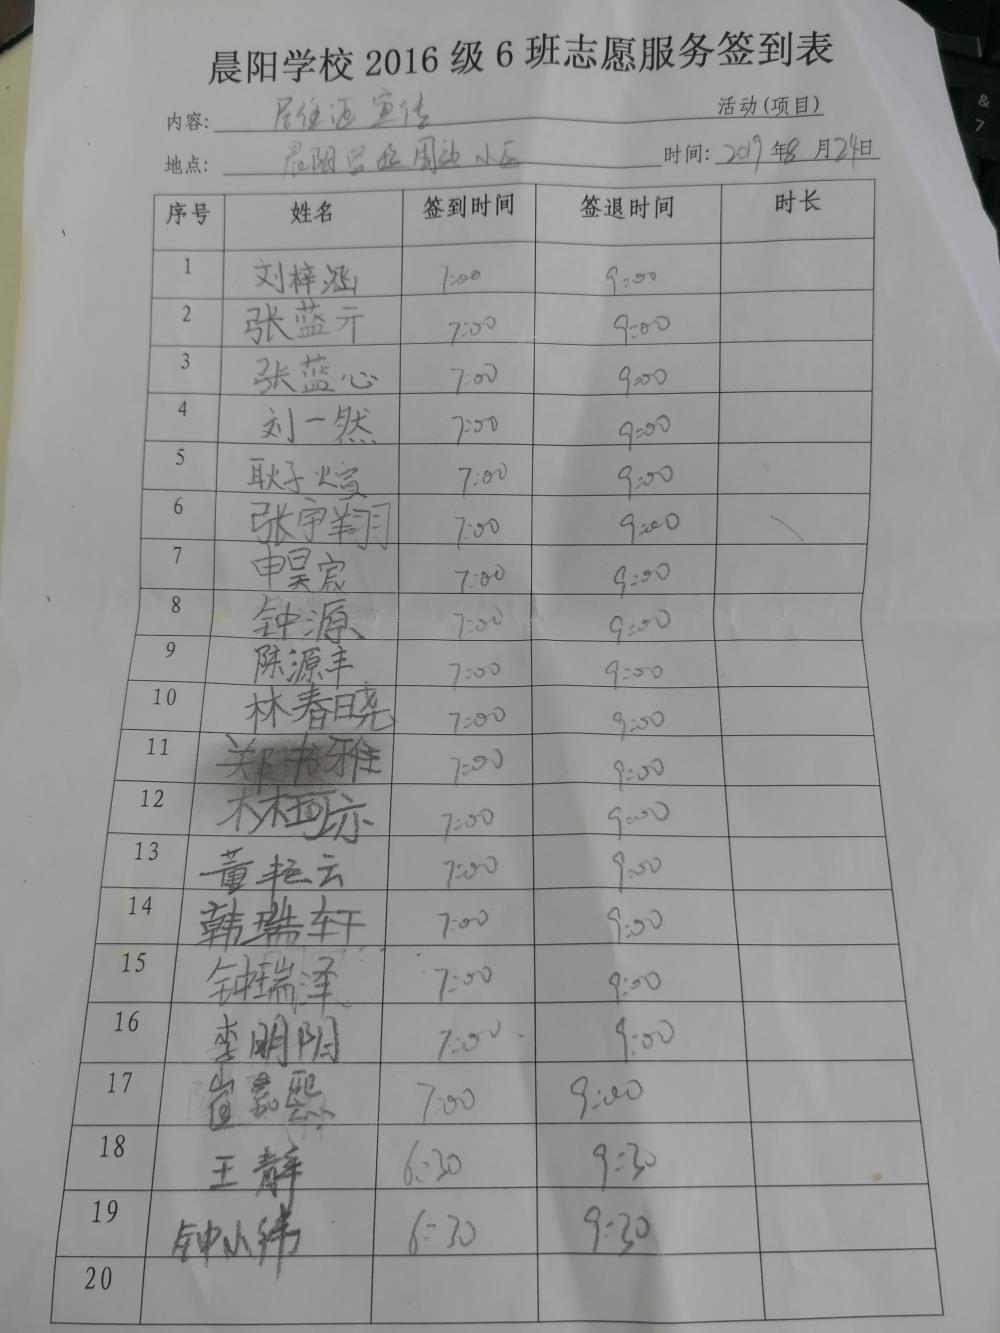 晨阳学校2016级6班志愿服务签到表
内容: 居住证宣传 活动(项目)
地点: 晨阳学校周边小区 时间: 2019年8月24日
序号 姓名 签到时间 签退时间 时长
1 刘梓涵 7:00 9:00
2 张蓝亓 7:00 9:00
3 张蓝心 7:00 9:00
4 刘一然 7:00 9:00
5 耿子煊 7:00 9:00
6 张宇翔 7:00 9:00
7 申昊宸 7:00 9:00
8 钟源 7:00 9:00
9 陈源丰 7:00 9:00
10 林春晓 7:00 9:00
11 郑书雅 7:00 9:00
12 林珂亦 7:00 9:00
13 董艳云 7:00 9:00
14 韩瑞轩 7:00 9:00
15 钟瑞泽 7:00 9:00
16 李明阴 7:00 9:00
17 崔嘉熙 7:00 9:00
18 王静 6:30 9:30
19 钟小纬 6:30 9:30
20
&
7